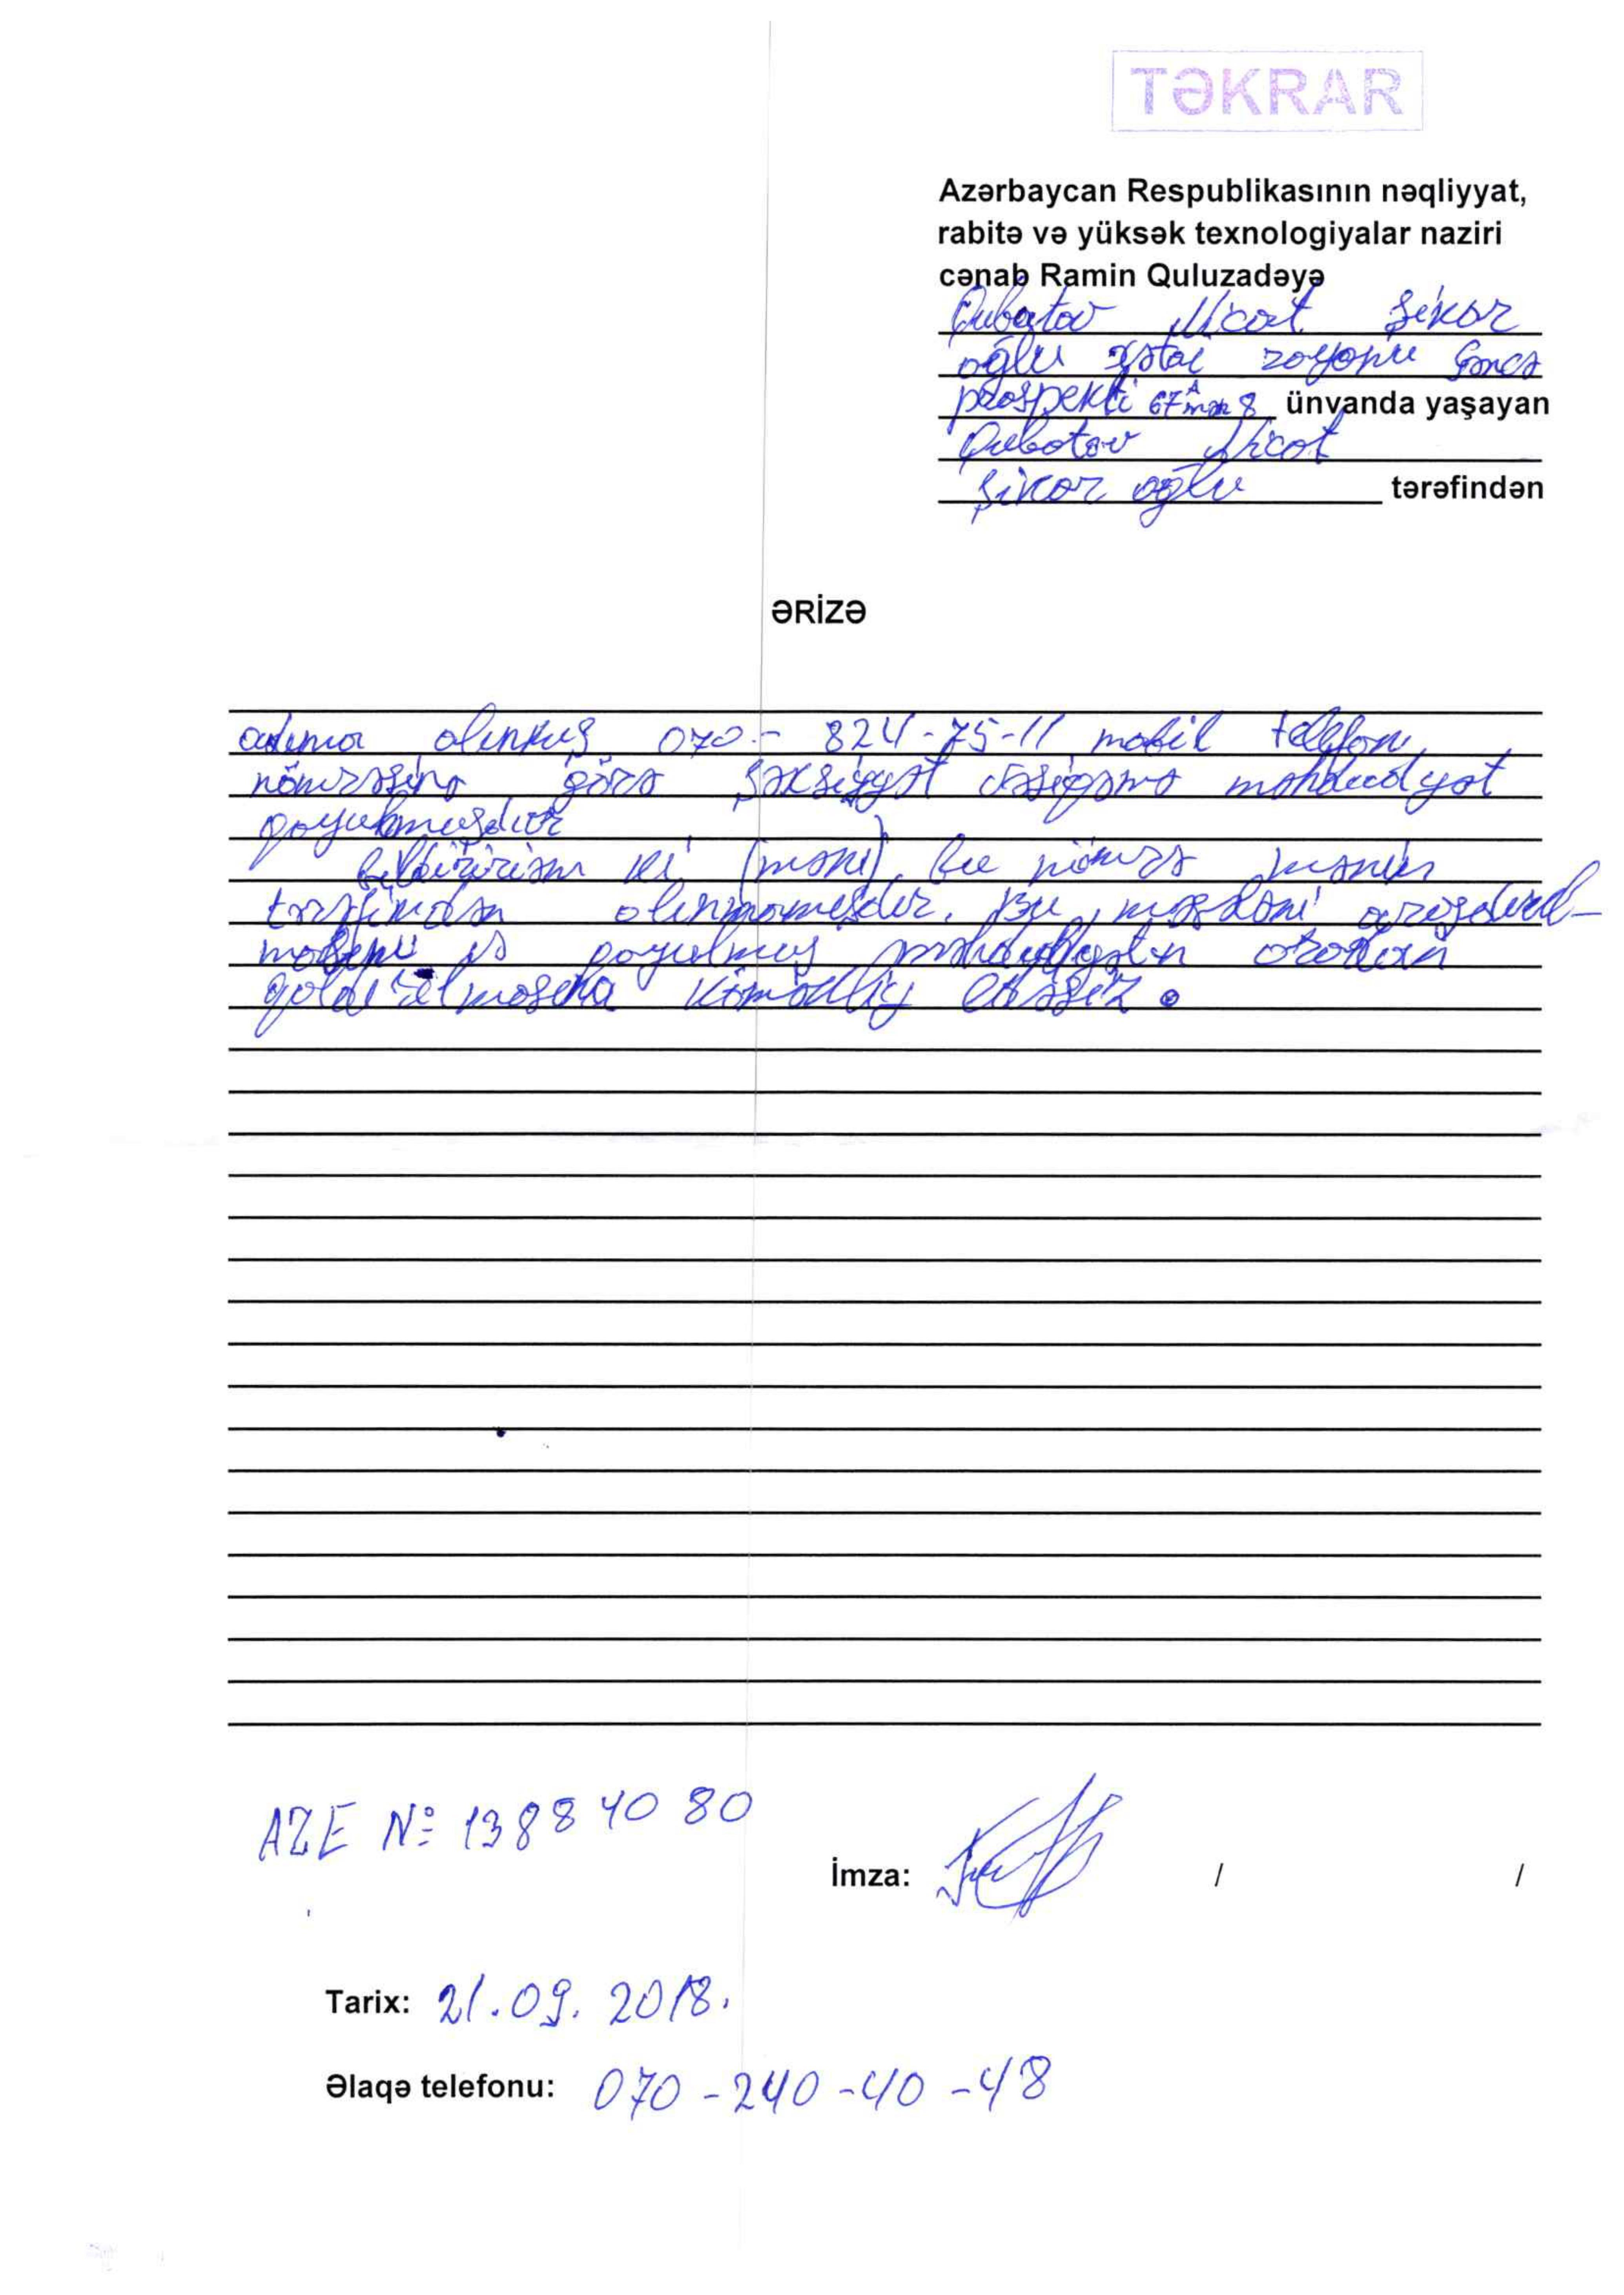 TƏKRAR
Azərbaycan Respublikasının nəqliyyat,
rabitə və yüksək texnologiyalar naziri
cənab Ramin Quluzadəyə
Qubatov Nicat Şikar
oğlu Xətai rayonu Gəncə
prospekti 67A mən 8 ünvanda yaşayan
Qubatov Nicat
Şikar oğlu tərəfindən
ƏRİZƏ
adıma alınmış 070- 824-75-11 mobil telefon
nömrəsinə görə şəxsiyyət vəsiqəmə məhdudyət
qoyulmuşdur
bildirirəm ki, (məni) bu nömrə mənim
tərəfimdən alınmamışdır. Bu məsələni araşdırıl-
masını və qoyulmuş məhdudyətin aradan
qaldırılmasına köməklik edəsiz.
AZE № 13884080
İmza: / /
Tarix: 21.09.2018.
Əlaqə telefonu: 070-240-40-48